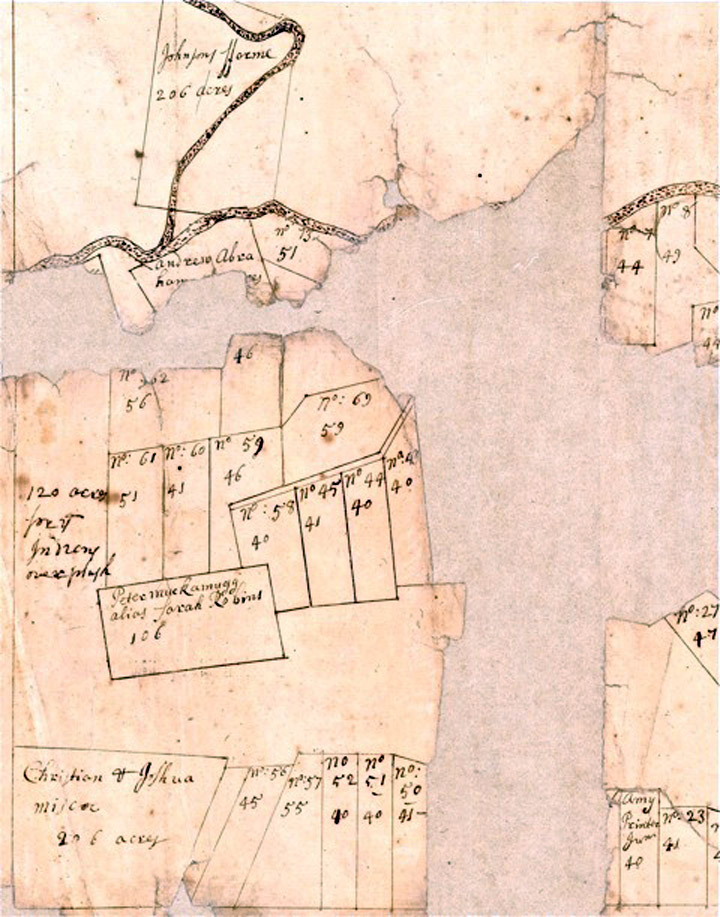 Johnsons fferme
206 acres
Andrew Abra
ham
no 73
51
no 7
44
no 8
49
No
44
46
No 62
56
no: 69
59
no: 61
51
No: 60
41
no 59
46
120 acres
for ye
Indians
overplush
no: 58
40
no 45
41
no 44
40
no: 4
40
Peter muckamugg
alias Sarah Robins
106
no: 27
47
Christian & Joshua
miscoe
206 acres
no: 56
45
no: 57
55
no
52
40
no
51
40
no:
50
41
Amy
Printer
Junr
40
no: 23
41